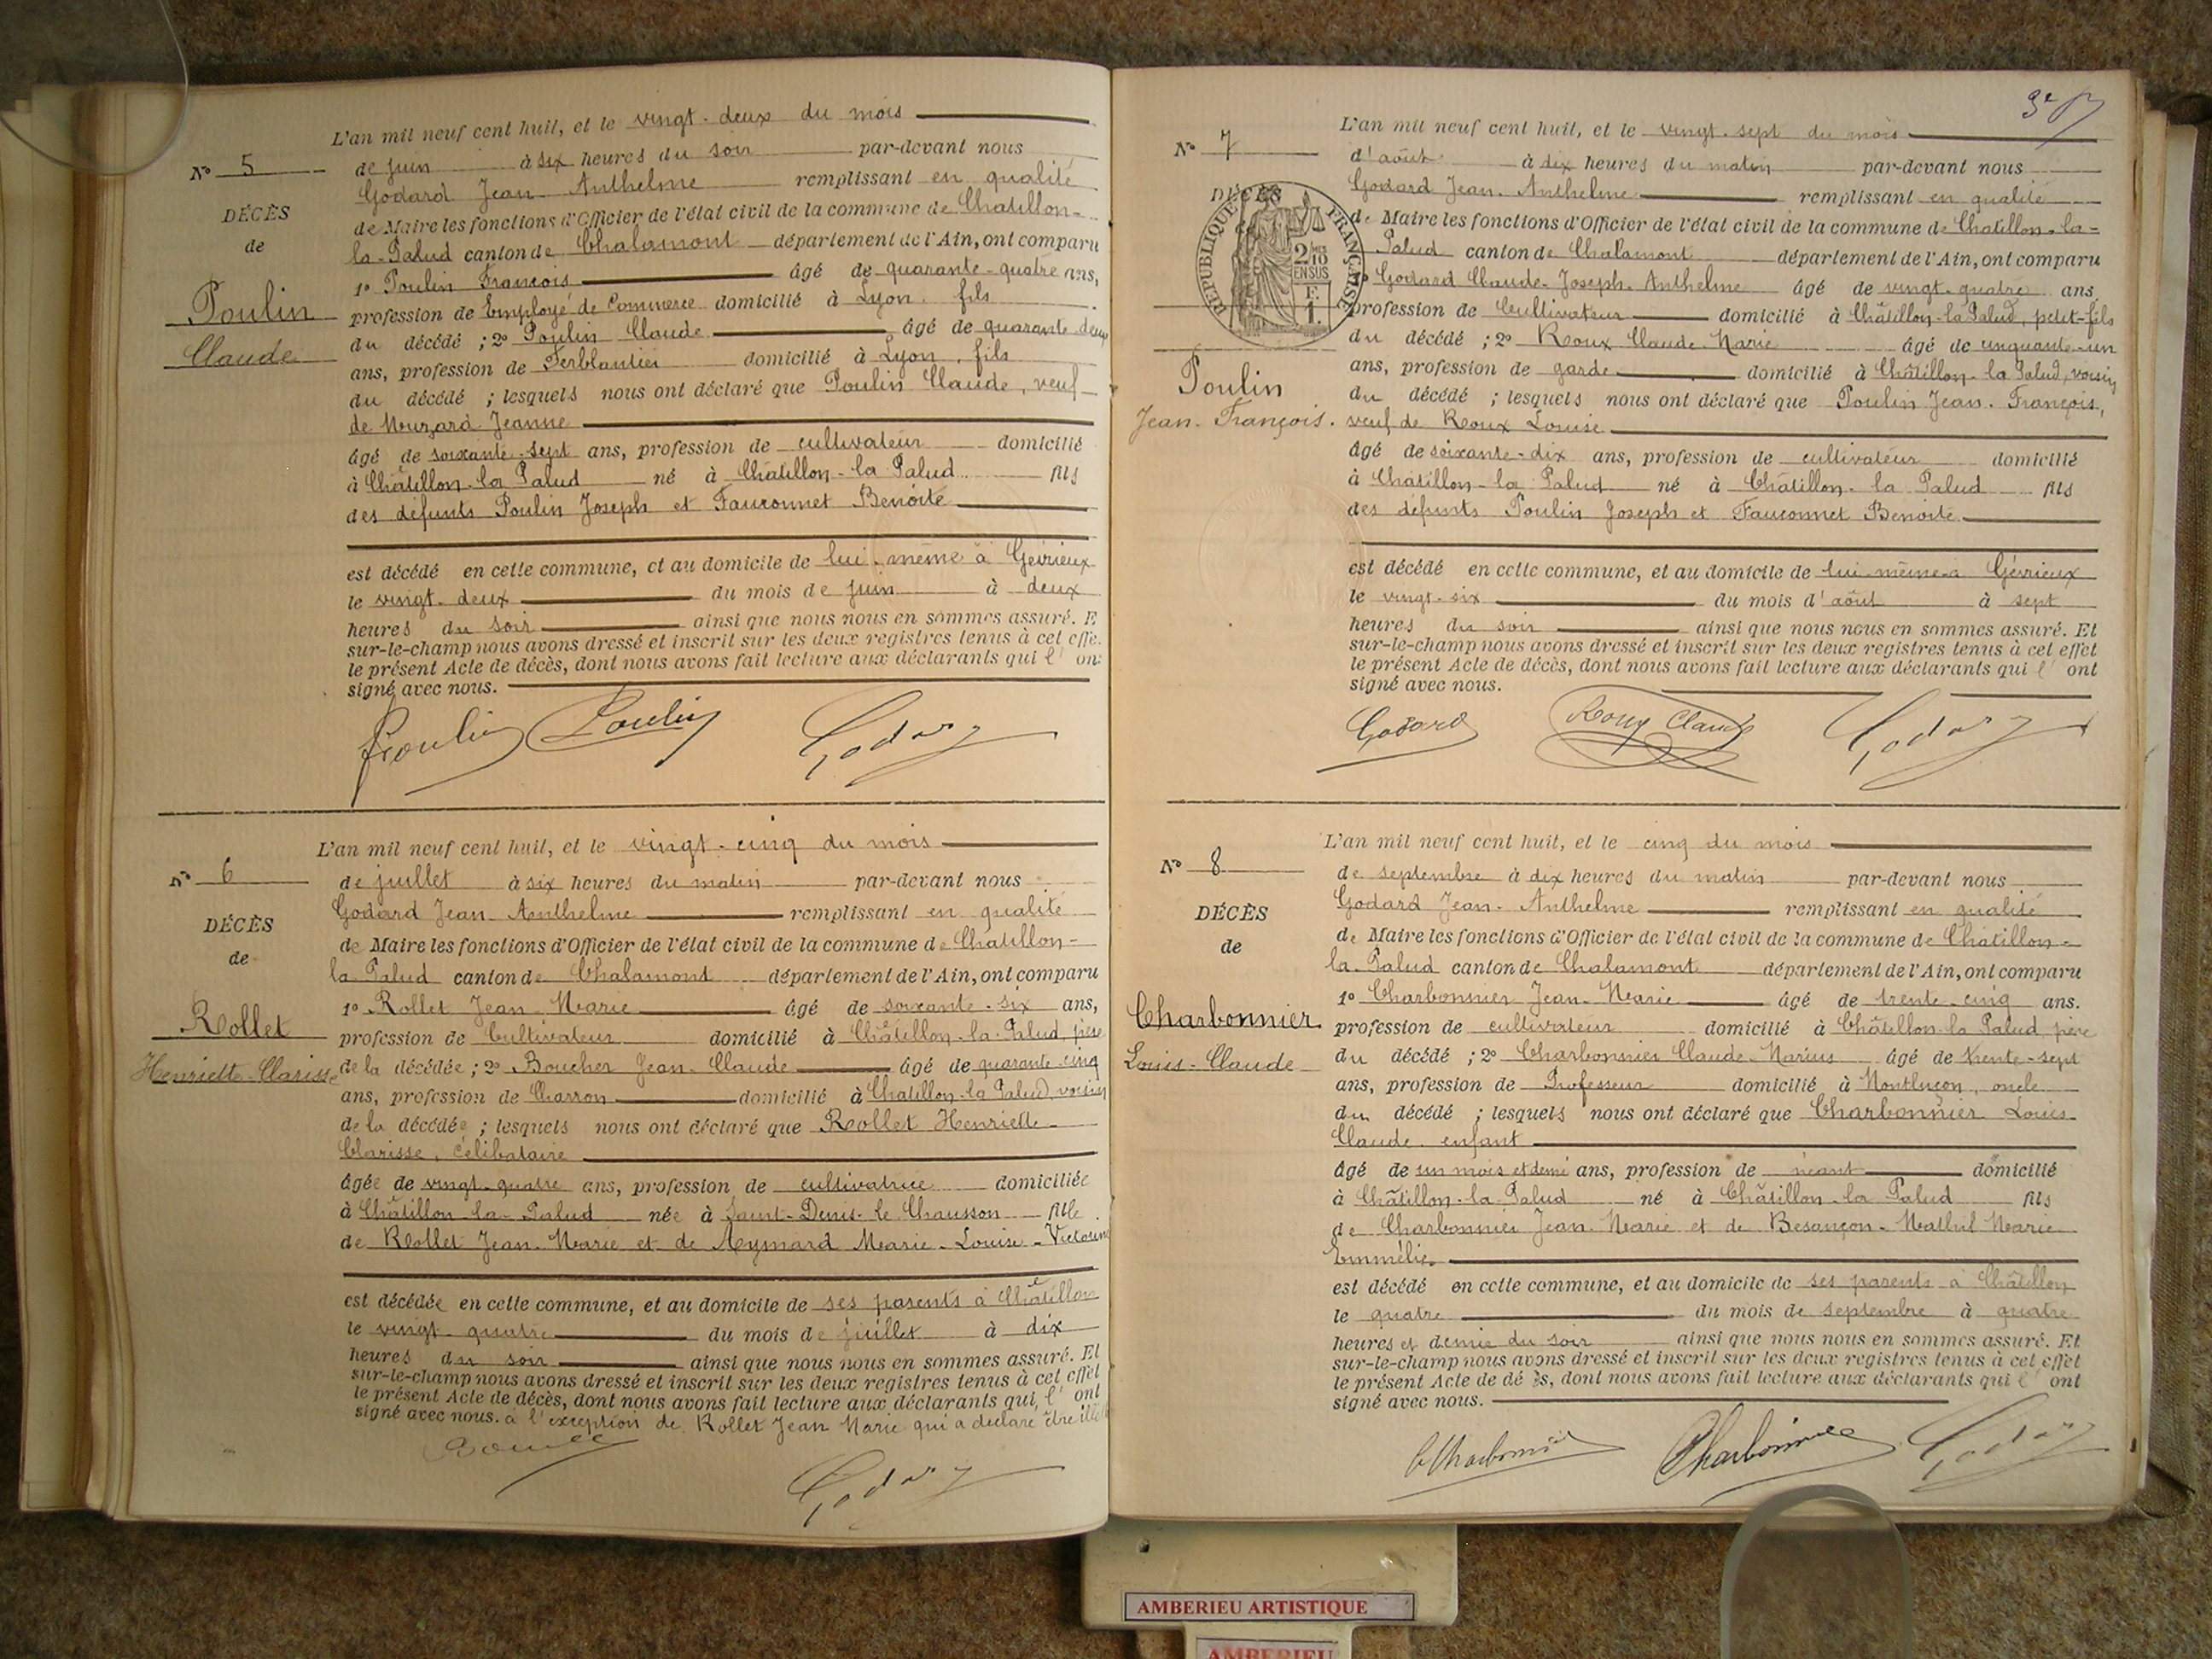 L'an mil neuf cent huit, et le vingt-deux du mois
N° 5 de juin à six heures du soir par-devant nous
Godard Jean Anthelme remplissant en qualité
DÉCÈS de Maire les fonctions d'Officier de l'état civil de la commune de Chatillon-
de la-Palud canton de Chalamont département de l'Ain, ont comparu
1° Poulin François âgé de quarante-quatre ans,
Poulin profession de Employé de Commerce domicilié à Lyon, fils
du décédé ; 2° Poulin Claude âgé de quarante-deux
Claude ans, profession de Ferblantier domicilié à Lyon, fils
du décédé ; lesquels nous ont déclaré que Poulin Claude, veuf
de Mouzard Jeanne
âgé de soixante-sept ans, profession de cultivateur domicilié
à Châtillon-la Palud né à Châtillon-la Palud fils
des défunts Poulin Joseph et Fauconnet Benoîte
est décédé en cette commune, et au domicile de lui-même à Gévrieux
le vingt-deux du mois de juin à deux
heures du soir ainsi que nous nous en sommes assuré. E
sur-le-champ nous avons dressé et inscrit sur les deux registres tenus à cet effe
le présent Acte de décès, dont nous avons fait lecture aux déclarants qui l' on
signé avec nous.
Poulin Poulin Godard
L'an mil neuf cent huit, et le vingt-cinq du mois
N° 6 de juillet à six heures du matin par-devant nous
Godard Jean-Anthelme remplissant en qualité
DÉCÈS de Maire les fonctions d'Officier de l'état civil de la commune de Châtillon-
de la Palud canton de Chalamont département de l'Ain, ont comparu
1° Rollet Jean-Marie âgé de soixante-six ans,
Rollet profession de Cultivateur domicilié à Châtillon-la-Palud, père
Henriette-Clarisse de la décédée ; 2° Boucher Jean-Claude âgé de quarante-cinq
ans, profession de Charron domicilié à Chatillon-la Palud, voisin
de la décédée ; lesquels nous ont déclaré que Rollet Henriette-
Clarisse, célibataire
âgée de vingt-quatre ans, profession de cultivatrice domiciliée
à Châtillon-la-Palud née à Saint-Denis-le Chausson fille
de Rollet Jean-Marie et de Aymard Marie-Louise-Victorine
est décédée en cette commune, et au domicile de ses parents à Châtillon
le vingt-quatre du mois de juillet à dix
heures du soir ainsi que nous nous en sommes assuré. Et
sur-le-champ nous avons dressé et inscrit sur les deux registres tenus à cet effet
le présent Acte de décès, dont nous avons fait lecture aux déclarants qui, l' ont
signé avec nous. à l'exception de Rollet Jean Marie qui a déclaré être
Godard
L'an mil neuf cent huit, et le vingt-sept du mois
N° 7 d'août à dix heures du matin par-devant nous
Godard Jean-Anthelme remplissant en qualité
DÉCÈS de Maire les fonctions d'Officier de l'état civil de la commune de Chatillon-la-
Palud canton de Chalamont département de l'Ain, ont comparu
RÉPUBLIQUE FRANÇAISE
2/10 EN SUS
F. 1.
1° Godard Claude-Joseph-Anthelme âgé de vingt-quatre ans
profession de Cultivateur domicilié à Châtillon-la Palud, petit-fils
du décédé ; 2° Roux Claude-Marie âgé de cinquante-un
Poulin ans, profession de garde domicilié à Châtillon-la Palud, voisin
du décédé ; lesquels nous ont déclaré que Poulin Jean-François,
Jean-François. veuf de Roux Louise
âgé de soixante-dix ans, profession de cultivateur domicilié
à Châtillon-la Palud né à Châtillon-la Palud fils
des défunts Poulin Joseph et Fauconnet Benoîte
est décédé en cette commune, et au domicile de lui-même à Gévrieux
le vingt-six du mois d'août à sept
heures du soir ainsi que nous nous en sommes assuré. Et
sur-le-champ nous avons dressé et inscrit sur les deux registres tenus à cet effet
le présent Acte de décès, dont nous avons fait lecture aux déclarants qui l' ont
signé avec nous.
Godard Roux Claude Godard
L'an mil neuf cent huit, et le cinq du mois
N° 8 de septembre à dix heures du matin par-devant nous
Godard Jean-Anthelme remplissant en qualité
DÉCÈS de Maire les fonctions d'Officier de l'état civil de la commune de Châtillon-
de la-Palud canton de Chalamont département de l'Ain, ont comparu
1° Charbonnier Jean-Marie âgé de trente-cinq ans.
Charbonnier profession de cultivateur domicilié à Châtillon-la Palud, père
Louis-Claude du décédé ; 2° Charbonnier Claude-Marius âgé de trente-sept
ans, profession de Professeur domicilié à Montluçon, oncle
du décédé ; lesquels nous ont déclaré que Charbonnier Louis-
Claude, enfant
âgé de un mois et demi ans, profession de néant domicilié
à Châtillon-la-Palud né à Châtillon-la Palud fils
de Charbonnier Jean-Marie et de Besançon-Mathul Marie
Emmélie
est décédé en cette commune, et au domicile de ses parents à Châtillon
le quatre du mois de septembre à quatre
heures et demie du soir ainsi que nous nous en sommes assuré. Et
sur-le-champ nous avons dressé et inscrit sur les deux registres tenus à cet effet
le présent Acte de dé ès, dont nous avons fait lecture aux déclarants qui l' ont
signé avec nous.
C Charbonnier Charbonnier Godard
AMBERIEU ARTISTIQUE
AMBERIEU